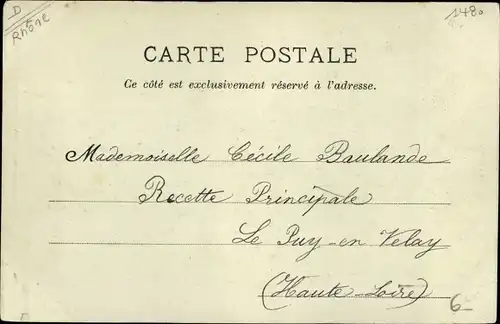 D
Rhône
1480
CARTE POSTALE
Ce côté est exclusivement réservé à l'adresse.
Mademoiselle Cécile Baulande
Recette Principale
Le Puy-en Velay
(Haute-Loire)
6-